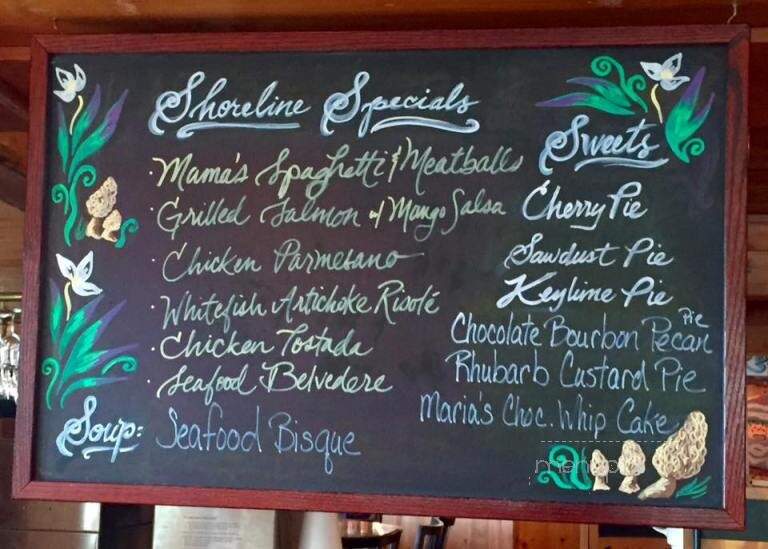 Shoreline Specials
· Mama's Spaghetti & Meatballs
· Grilled Salmon w/ Mango Salsa
· Chicken Parmesano
· Whitefish Artichoke Risoté
· Chicken Tostada
· Seafood Belvedere
Soup: Seafood Bisque
Sweets
Cherry Pie
Sawdust Pie
Keylime Pie
Chocolate Bourbon Pecan Pie
Rhubarb Custard Pie
Maria's Choc. Whip Cake
menupix